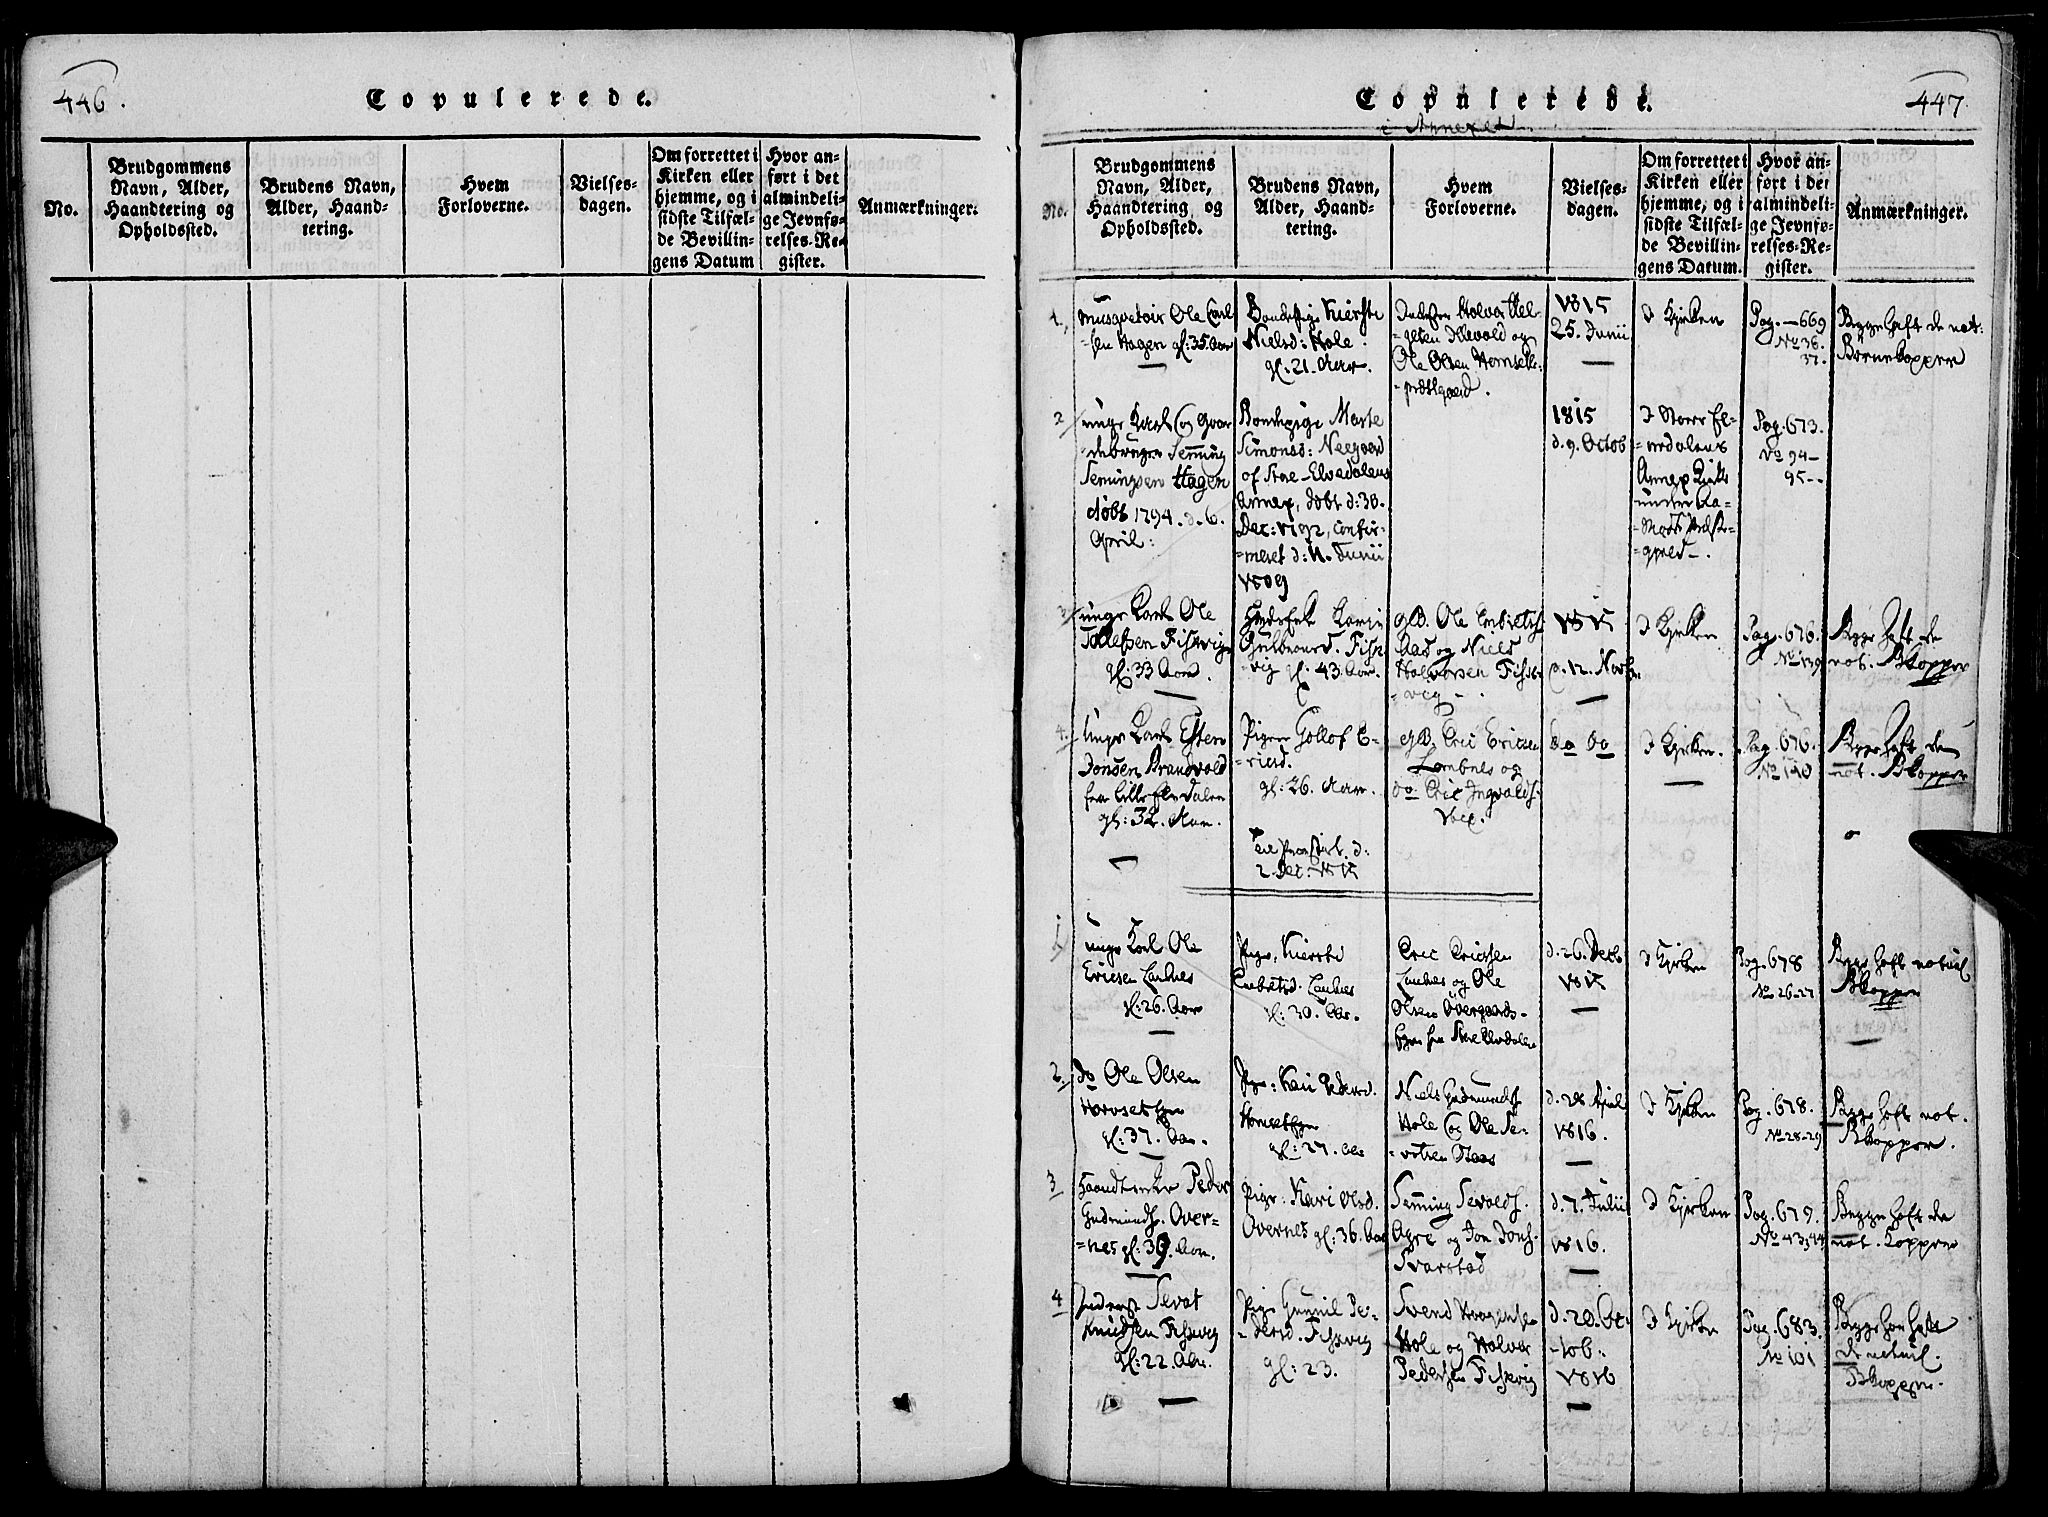 446.
Copulerede.
No.
Brudgommens
Navn, Alder,
Haandtering og
Opholdssted.
Brudens Navn,
Alder, Haand-
tering.
Hvem
Forloverne.
Vielses-
dagen.
Om forrettet i
Kirken eller
hjemme, og i
sidste Tilfæl-
de Bevillin-
gens Datum
Hvor an-
ført i det
almindeli-
ge Jevnfø-
relses-Re-
gister.
Anmærkninger.
447.
Copulerede.
i Annexet
No.
Brudgommens
Navn, Alder,
Haandtering og
Opholdssted.
Brudens Navn,
Alder, Haand-
tering.
Hvem
Forloverne.
Vielses-
dagen.
Om forrettet i
Kirken eller
hjemme, og i
sidste Tilfæl-
de Bevillin-
gens Datum.
Hvor an-
ført i det
almindeli-
ge Jevnfø-
relses-Re-
gister.
Anmærkninger.
1,
Musqveteir Ole Carl-
-sen Hagen gl: 35. Aar
Bondepige Kiersti
Nielsd: Hole.
gl. 21. Aar.
Holvor Hel-
-gesen og
Ole Olsen Hornset
-præstgaard.
1815
25. Junii
I Kjirken
Pag. 669
No 36.
37.
Begge haft de nat:
Børnekopper
2/
unge Karl og
Semming
Semingsen Hagen
døbt 1794. d. 6.
April:
Bondepige Marte
Simonsd: Neegaard
af Store-Elvedalens
Annex, døbt d: 30.
Dec: 1792, confir-
=meret d: 11. Junii
1809
1815
d. 9. Octob
I Store El-
=vedalens
Annex Kirke
under Aa-
=mods Præste-
=gield.
Pag. 673.
No 94-
95--
3/
unge Karl Ole
Tollefsen Fiskvig
gl: 33 Aar.
Karen
Gulbrandsd. Fisk-
=vig gl. 43. Aar.
gB. Ole Embretsø
og Niels
Halvorsen Fisk-
=vig
1815
d. 12. Novbr
I Kjirken
Pag. 676.
No 139
Begge haft de
nat. Bkopper
4.
unge Karl Esten
Jonsen Brandvold
fra Lille Elvdalen
gl: 32. Aar.
Pigen Gollof E-
=ricsd.
gl: 26. Aar.
gB. Eric Ericsen
og
do Eric Ingvalds.
do do
I Kjirken.
Pag. 676.
No 140
Begge haft de
nat. Bkopper
d:
2. Dec. 1815
1/
unge Karl Ole
Ericsen
gl: 26. Aar
Pige, Kiersti
Embretsd.
gl: 30. Aar.
Eric Ericssen
og Ole
Olsen Overgaards-
fra Store Elvdalen
d. 26. Decb
1815
I Kjirken
Pag. 678
No 26-27
Begge haft naturl
Bkopper
2.
do Ole Olsen
gl: 37. Aar.
Pige, Kari Pedersd.
gl: 27. Aar
Niels Gudmunds.
Hole og Ole Si-
=vertsen
d. 28 April
1816.
I Kjirken
Pag. 678.
No 28-29
Begge haft nat.
Bkopper.
3
Peder
Gudmunds. Over-
=nes gl: 39. Aar.
Pige, Kari Olsd.
Overnes gl: 36. Aar
Semming Sevalds.
Agre og Jon Jons.
Svarstad
d. 7. Julii
1816.
I Kjirken
Pag. 679.
No 43,44
Begge haft de
nat. Kopper
4
Sevat
Knudsen Fiskvig
gl: 22. Aar.
Pige Gunnil Pe-
=dersd. Fiskvig
gl: 23.
Svend
Hole og Halvor
Pedersen Fiskvig
d. 20. Oc-
-tob.
1816
I Kjirken
Pag. 683.
No 101
Begge har haft
de naturl.
Bkopper.